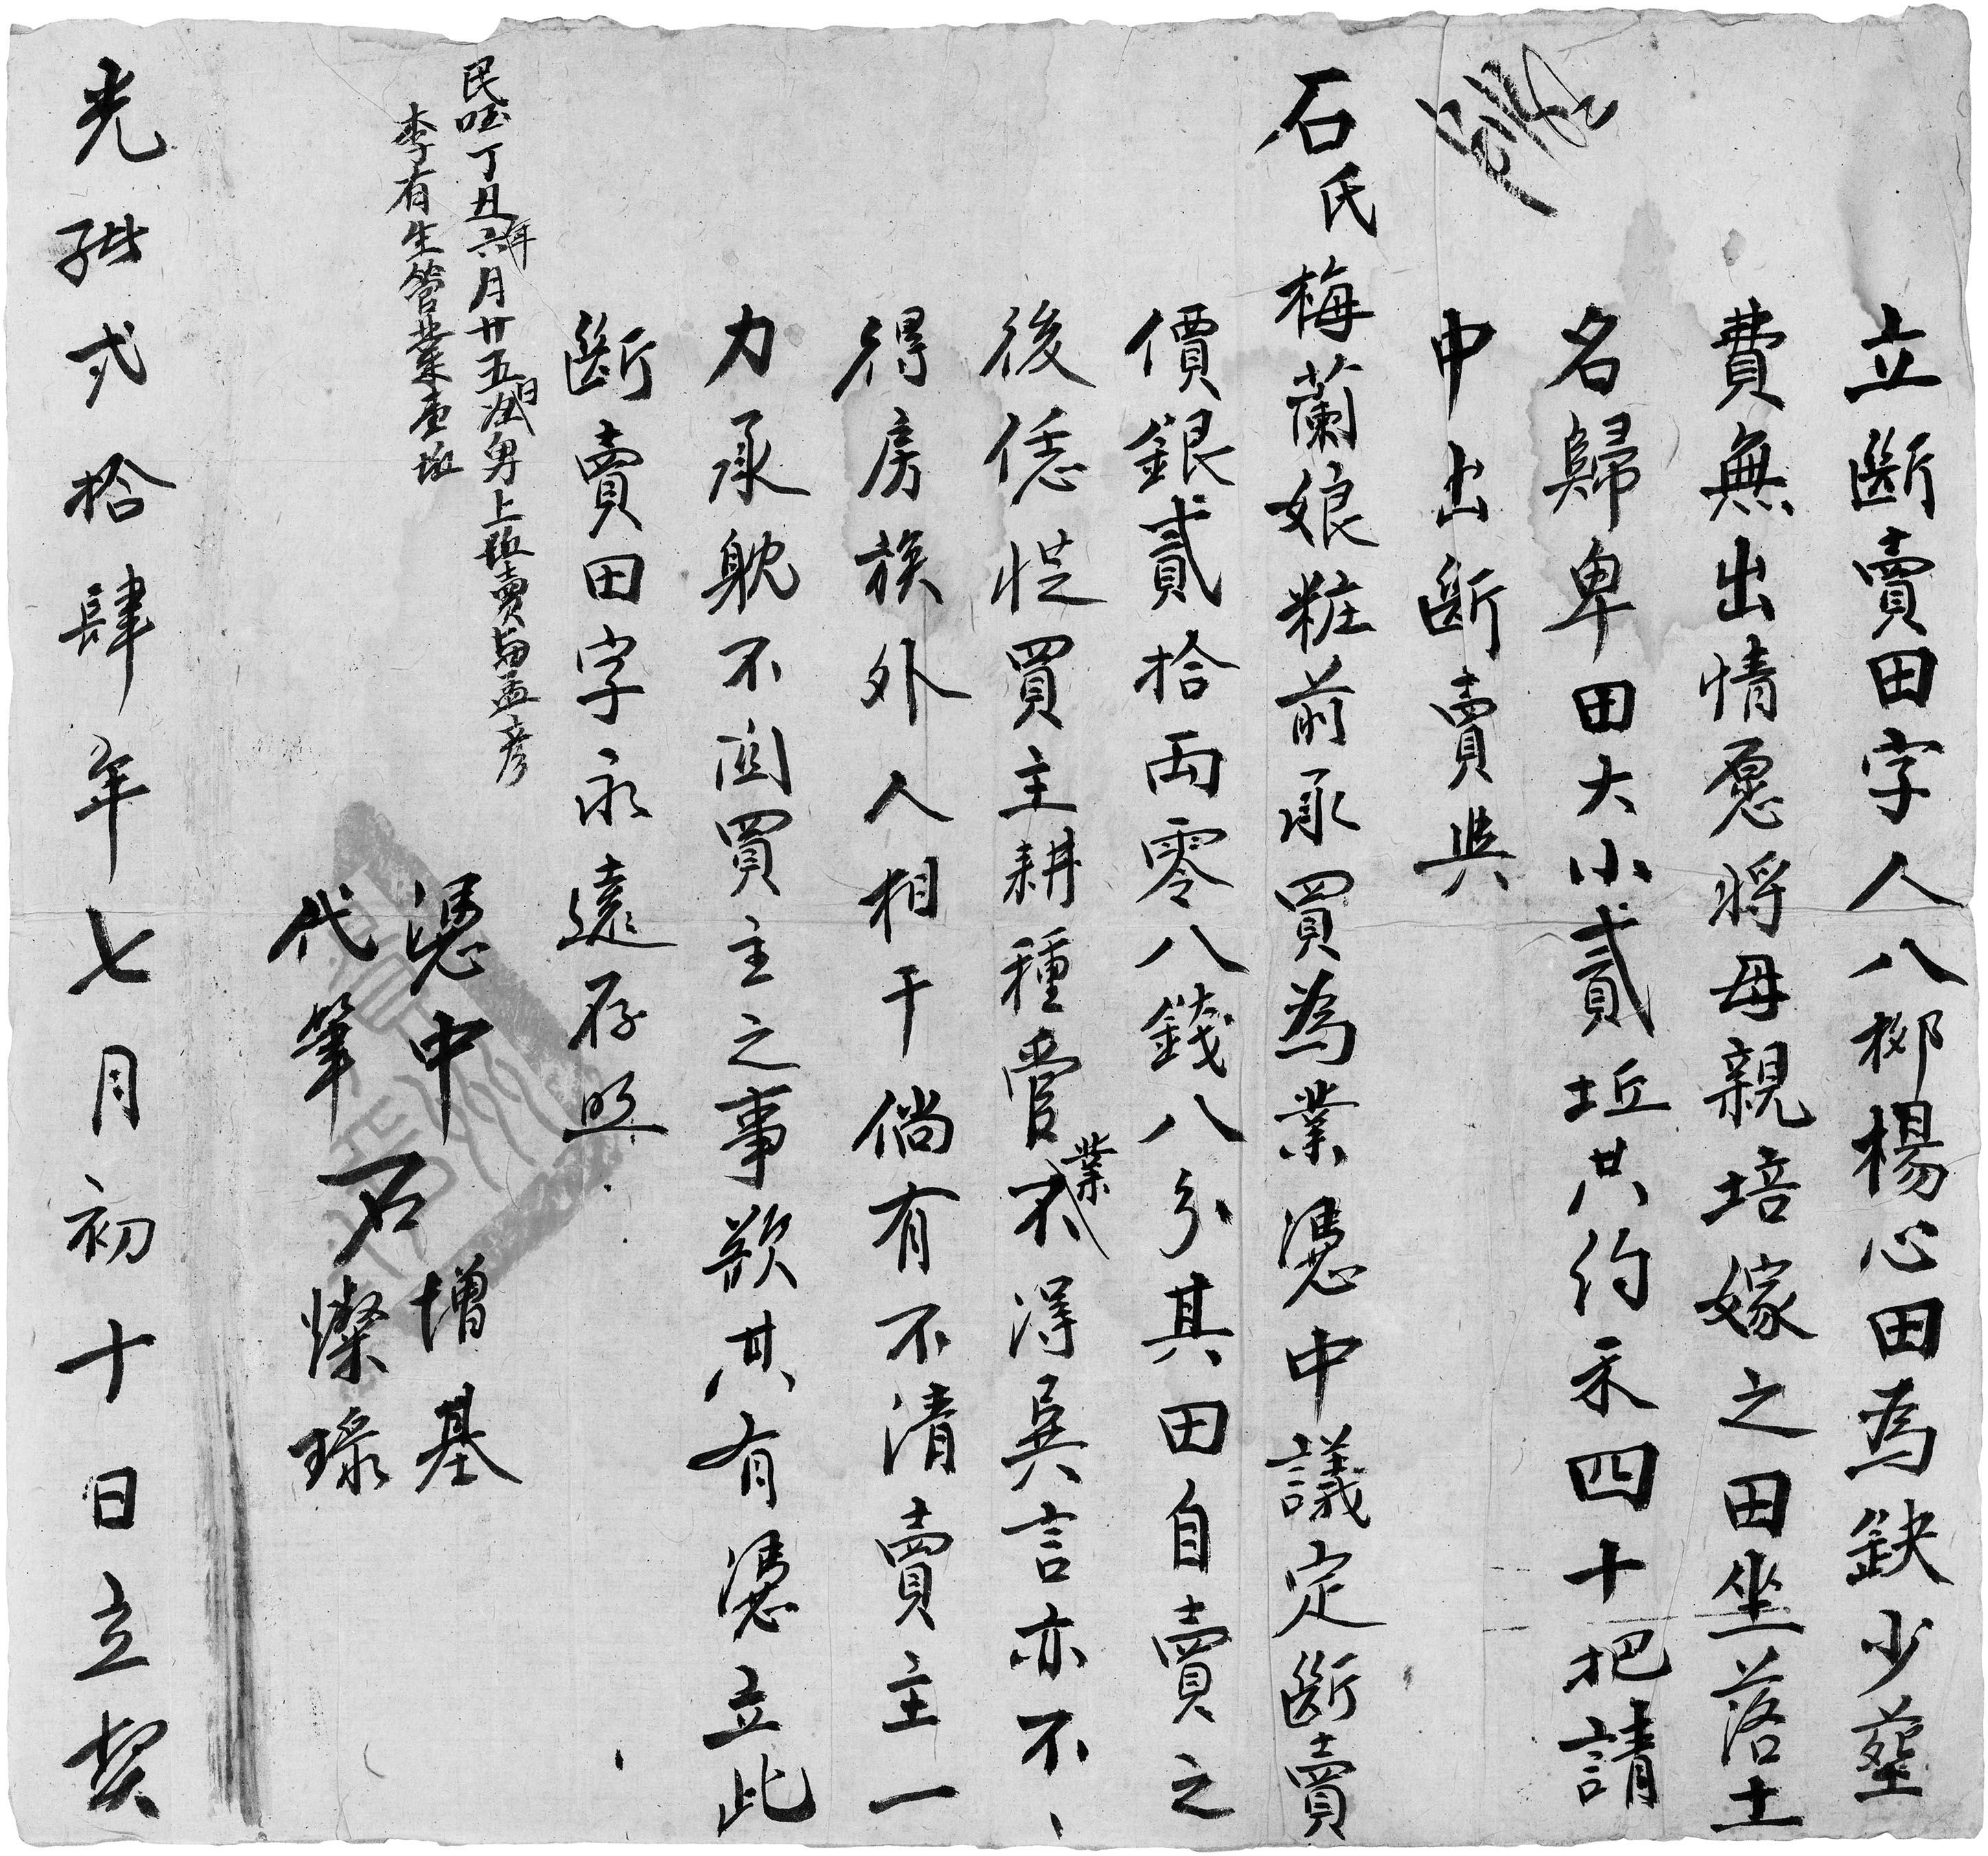 立斷賣田字人八栁楊心田為缺少塟
費無出情愿將母親培嫁之田坐落土
名歸卑田大小貳坵共約禾四十把請
中出斷賣與
石氏梅蘭娘粧前承買為業憑中議定斷賣
價銀貳拾両零八錢八分其田自賣之
後恁從買主耕種管業不得異言亦不
得房族外人相干倘有不清賣主一
力承躭不関買主之事欲共有憑立此
斷賣田字永遠存照
民國丁丑年六月廿五日 男上坵賣與孟彦
李有生管業壹坵
憑中 石增基
代筆 石燦琭
光緒弍拾肆年七月初十日立契